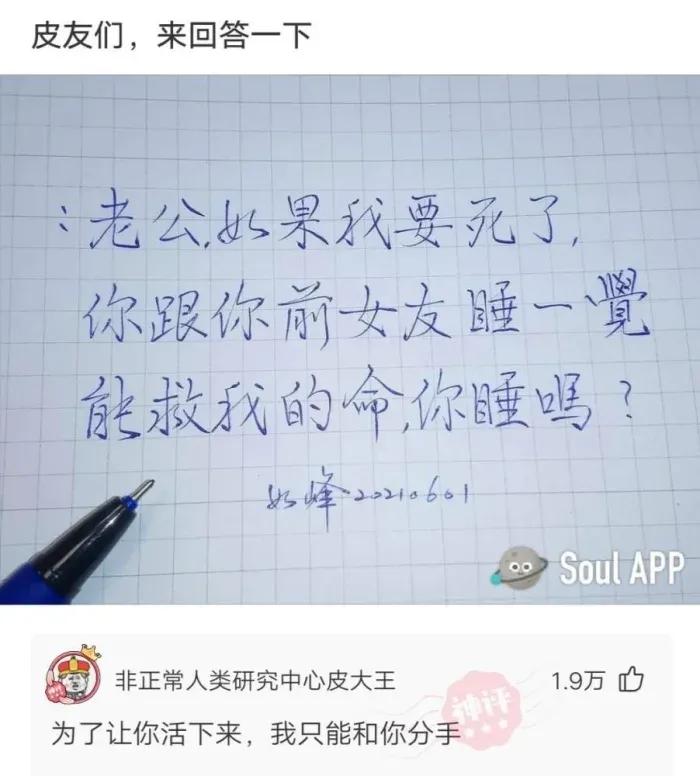 皮友们，来回答一下
：老公，如果我要死了，
你跟你前女友睡一覺
能救我的命，你睡嗎？
如峰 20210601
Soul APP
非正常人类研究中心皮大王
1.9万
神评
为了让你活下来，我只能和你分手